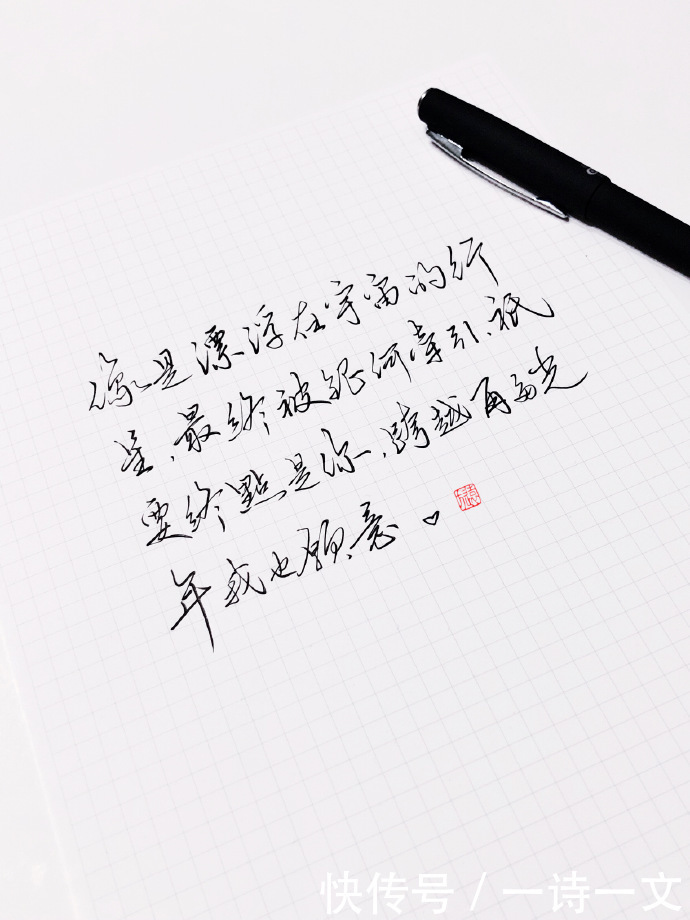 像是漂浮在宇宙的行
星,最终被你牵引,祇
要终點是你,跨越再多光
年我也願意♡
快传号/一诗一文